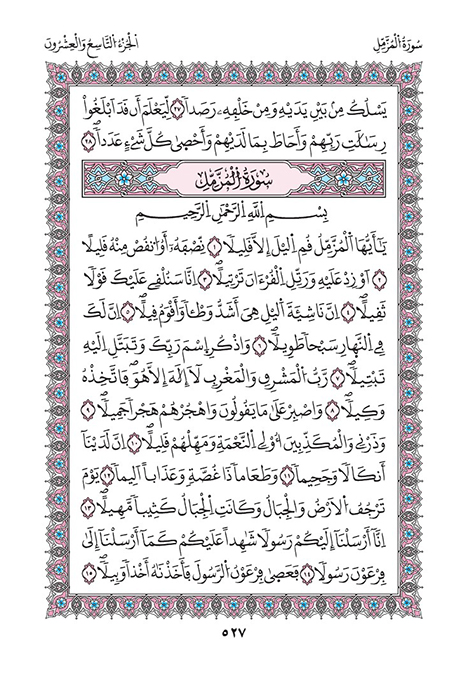 سُورَةُ الْمُزَّمِّلِ
الْجُزْءُ التَّاسِعُ وَالْعِشْرُونَ
يَسْلُكُ مِنۢ بَيْنِ يَدَيْهِ وَمِنْ خَلْفِهِۦ رَصَداً ٢٧ لِّيَعْلَمَ أَن قَدَ اَبْلَغُواْ
رِسَٰلَٰتِ رَبِّهِمْ وَأَحَاطَ بِمَا لَدَيْهِمْ وَأَحْص۪ىٰ كُلَّ شَےْءٍ عَدَداًۖ ٢٨
سُورَةُ الْمُزَّمِّلِ
بِسْمِ اِللَّهِ اِلرَّحْمَٰنِ اِلرَّحِيمِ
يَٰٓأَيُّهَا اَلْمُزَّمِّلُ قُمِ اِليْلَ إِلَّا قَلِيلاًۖ ١ نِّصْفَهُۥٓ أَوُ اُنقُصْ مِنْهُ قَلِيلاً
٢ اَوْ زِدْ عَلَيْهِ وَرَتِّلِ اِلْقُرْءَانَ تَرْتِيلاًۖ ٣ اِنَّا سَنُلْقِے عَلَيْكَ قَوْلاً
ثَقِيلاًۖ ٤ اِنَّ نَاشِئَةَ اَليْلِ هِيَ أَشَدُّ وَطْـٔاً وَأَقْوَمُ قِيلاًۖ ٥ اِنَّ لَكَ
فِے اِلنَّهَارِ سَبْحاً طَوِيلاًۖ ٦ وَاذْكُرِ اِسْمَ رَبِّكَ وَتَبَتَّلِ اِلَيْهِ
تَبْتِيلاًۖ ٧ رَّبُّ اُلْمَشْرِقِ وَالْمَغْرِبِ لَآ إِلَٰهَ إِلَّا هُوَۖ فَاتَّخِذْهُ
وَكِيلاًۖ ٨ وَاصْبِرْ عَلَىٰ مَا يَقُولُونَ وَاهْجُرْهُمْ هَجْراً جَمِيلاًۖ ٩
وَذَرْنِے وَالْمُكَذِّبِينَ أُوْلِے اِلنَّعْمَةِ وَمَهِّلْهُمْ قَلِيلاًۖ ١٠ اِنَّ لَدَيْنَآ
أَنكَالاً وَجَحِيماً ١١ وَطَعَاماً ذَا غُصَّةٍ وَعَذَاباً اَلِيماً ١٢ يَوْمَ
تَرْجُفُ اُلَارْضُ وَالْجِبَالُ وَكَانَتِ اِلْجِبَالُ كَثِيباً مَّهِيلاًۖ ١٣
اِنَّآ أَرْسَلْنَآ إِلَيْكُمْ رَسُولاً شَٰهِداً عَلَيْكُمْ كَمَآ أَرْسَلْنَآ إِلَىٰ
فِرْعَوْنَ رَسُولاًۖ ١٤ فَعَص۪ىٰ فِرْعَوْنُ اُلرَّسُولَ فَأَخَذْنَٰهُ أَخْذاً وَبِيلاًۖ ١٥
٥٢٧